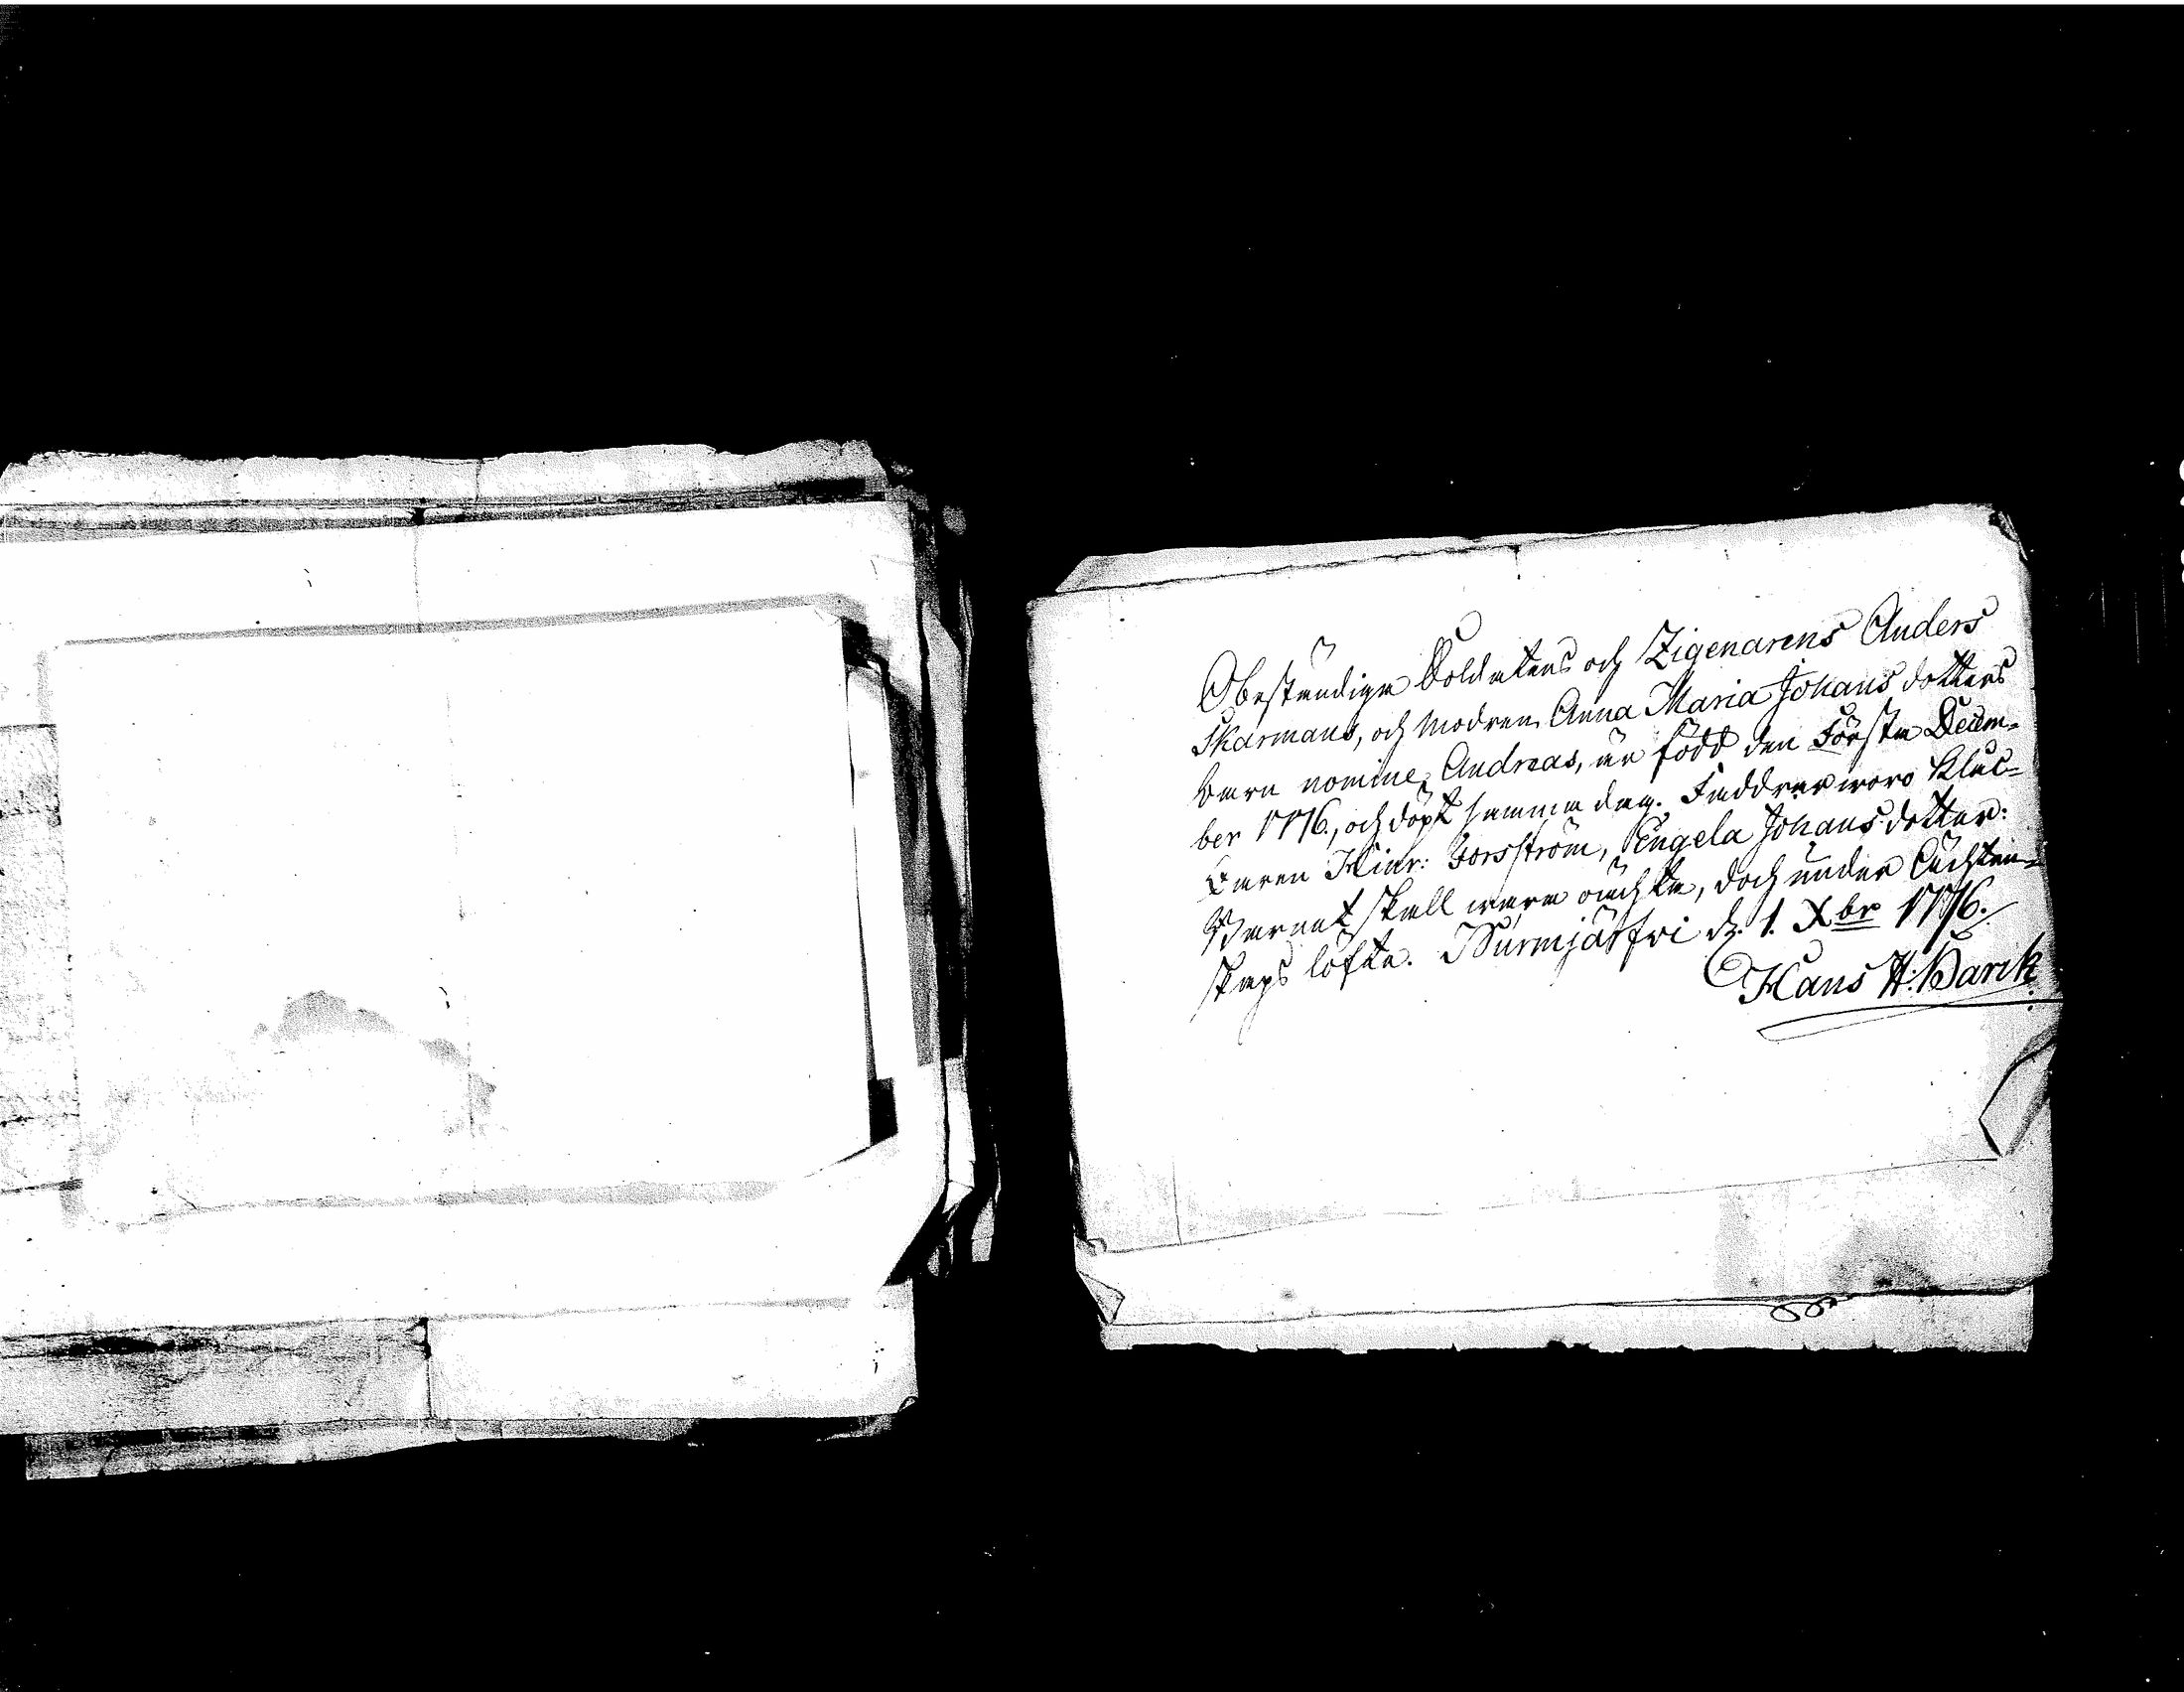 Obeständige Soldatens och Zigenarens Anders
Skarmans, och modren Anna Maria Johans dotters
barn nomine Andreas, är född den Första Decem-
ber 1776., och döpt samma dag. Faddrar woro Kluc-
karen Hinr: Forsström, Engela Johans dotter:
Barnet skall wara oächta, doch under Ächten-
skaps löfte. Nurmjärfvi d. 1. Xbr 1776.
Hans H: Barck